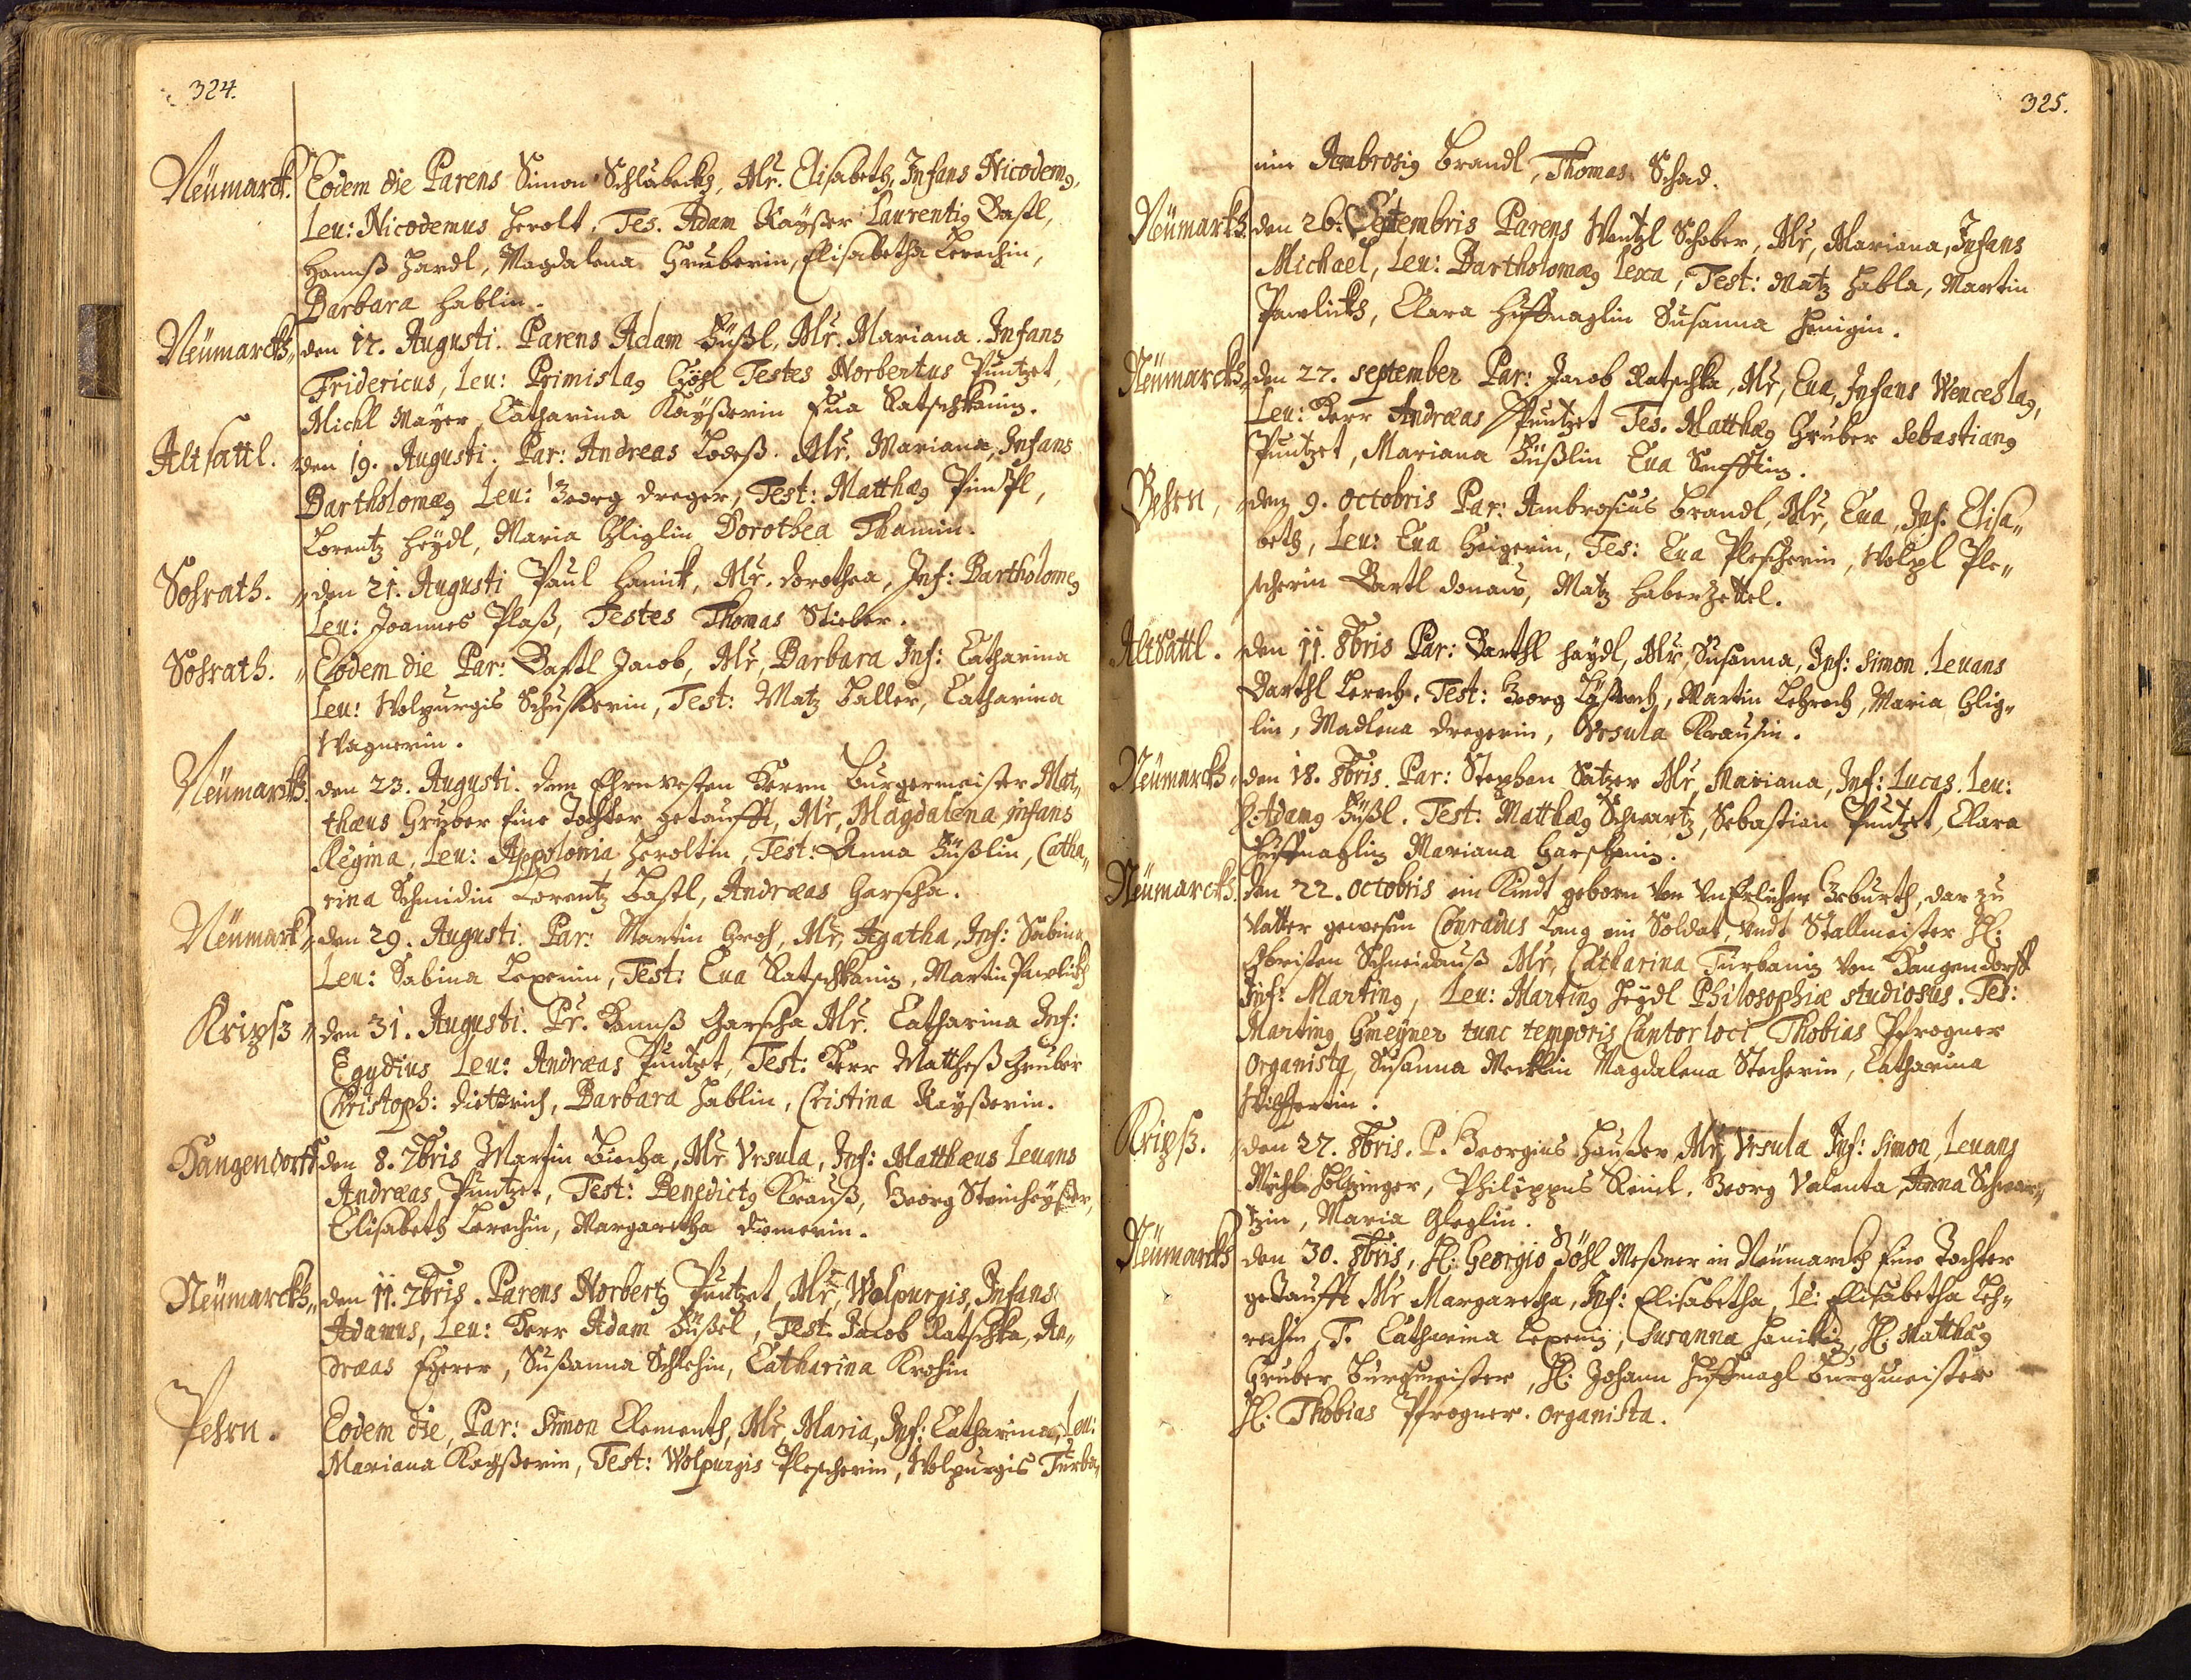 324.
Neümarck. Eodem die Parens Simon Schlabeckh, Mr. Elisabeth, Infans Nicodemg,
Leu: Nicodemus Herolt, Tes. Adam Kayßer Laurentig Bastl,
Hannß Hardl, Magdalena Gruberin, Elisabetha Lerechin,
Barbara Hablin.
Neümarckh. den 17. Augusti. Parens Adam Züßl, Mr. Mariana. Infans
Fridericus, Leu: Primislag Göhl Testes Norbertus Puntzet,
Michl Mayer, Catharina Kayßerin Eua Ratschkanin.
Altsattl. den 19. Augusti. Par: Andreas Lodeß. Mr. Mariana, Infans
Bartholomæg Leu: Georg Dreger, Test: Matthæg
Lorentz Heydl, Maria Gliglin Dorothea Thamin.
Sohrath. den 21. Augusti Paul Hanick, Mr. Dorothea, Inf: Bartholomeg
Leu: Joannes Plaß, Testes Thomas Stieber.
Sohrath. Eodem die Par: Bastl Jacob, Mr, Barbara Inf: Catharina
Leu: Wolpurgis Schusterin, Test: Matz Galler, Catharina
Wagnerin.
Neümarckh. den 23. Augusti. dem Ehrnvesten Herrn Burgermeister Mat-
thæus Gruber Eine Tochter getaufft, Mr, Magdalena infans
Regina, Leu: Appolonia Heroltin, Test: Anna Züßlin, Catha-
rina Schmidin Lorentz Bastl, Andræas Harscha.
Neümark den 29. Augusti. Par: Martin Groß, Mr, Agatha, Inf: Sabina
Leu: Sabina Lexenin, Test: Eua Ratschkanin, Martin Pawlickh
Kripß den 31. Augusti. Pr. Hannß Harscha Mr. Catharina Inf:
Egydius Leu: Andræas Puntzet, Test: Herr Mattheß Gruber
Christoph: Diettrich, Barbara Hablin, Cristina Kayßerin.
Hangendorff den 8. 7bris Martin Biecha, Mr Vrsula, Inf: Matthæus Leuans
Andræas Puntzet, Test: Benedictg Krauß, Georg Steinheyßer,
Elisabeth Lerechin, Margaretha
Neümarckh. den 11. 7bris. Parens Norbertg Puntzet, Mr, Wolpurgis, Infans
Adamus, Leu: Herr Adam Züßel, Test: Jacob Ratschka, An-
dræas Egerer, Sußanna Schlehin, Catharina Krohin
Pehrn. Eodem die, Par: Simon Clementh, Mr, Maria, Inf: Catharina, Leu:
Mariana Kayßerin, Test: Wolpurgis Plescherin, Wolpurgis Turba-
325.
nin Ambrosig Brandl, Thomas Schad.
Neümarckh. den 26. Septembris Parens Wentzl Schober, Mr, Mariana, Infans
Michael, Leu: Bartholomæg Lexa, Test: Matz Habla, Martin
Pawlickh, Clara Huffnaglin Susanna Hönigin.
Neümarckh. den 27. September Par: Jacob Ratschka, Mr, Eua, Infans Wenceslag,
Leu: Herr Andræas Puntzet Tes. Matthæg Gruber Sebastiang
Puntzet, Mariana Züßlin Eua
Behrn, den 9. Octobris Par: Ambrosius Brandl, Mr, Eua, Inf. Elisa-
beth, Leu: Eua Geigerin, Tes: Eua Plescherin, Wolpl Ple-
scherin Bartl Donaw, Matz Haberzettel.
Altsattl. den 11. 8bris Par: Barthl Haydl, Mr, Susanna, Inf: Simon. Leuans
Barthl Lerech, Test: Georg Martin Lehrech, Maria Glig-
lin, Madlena Dregerin, Vrsula Krausin.
Neümarckh. den 18. 8bris. Par: Stephan Satzer Mr, Mariana, Inf: Lucas. Leu:
H: Adamg Züßl. Test: Matthæg Schwartz, Sebastian Puntzet, Clara
Huffnaglin Mariana Harschanin.
Neümarckh. den 22. Octobris ein Kindt geborn von vnEhrlicher Geburth, dar zu
Vatter gewesen Conradus Lang ein Soldat vndt Stallmeister H:
Obristen Schneidauß Mr, Catharina Turbanin von Hangendorff
Inf: Marting, Leu: Marting Heydl Philosophiæ studiosus. Tes:
Marting Gmeyner tunc temporis Cantor loci Thobias Pfrogner
Organista, Susanna Mecklin Magdalena Stecherin, Catharina
Kripß. den 27. 8bris. P. Georgius Haußer Mr, Vrsula Inf: Simon, Leuans
Michl Holtzinger, Philippus Reindl. Georg Valenta, Anna Schwar-
tzin, Maria Gleglin.
Neümarckh den 30. 8bris, H: Georgio Göhl Meßner in Neumarckh Eine Tochter
getaufft Mr Margaretha, Inf: Elisabetha, Le: Elisabetha Leh-
rechin, T. Catharina Lexenin, Susanna Hanikin, H: Matthæg
Gruber Burgmeister, H: Johann Huffnagl Burgmeister
H: Thobias Pfrogner. Organista.